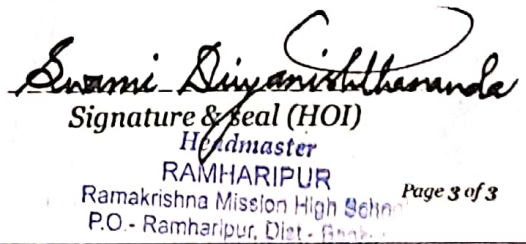 Swami Divyanishthananda
Signature & seal (HOI)
Headmaster
RAMHARIPUR
Ramakrishna Mission High
Page 3 of 3
P.O.- Ramharipur, Dist -